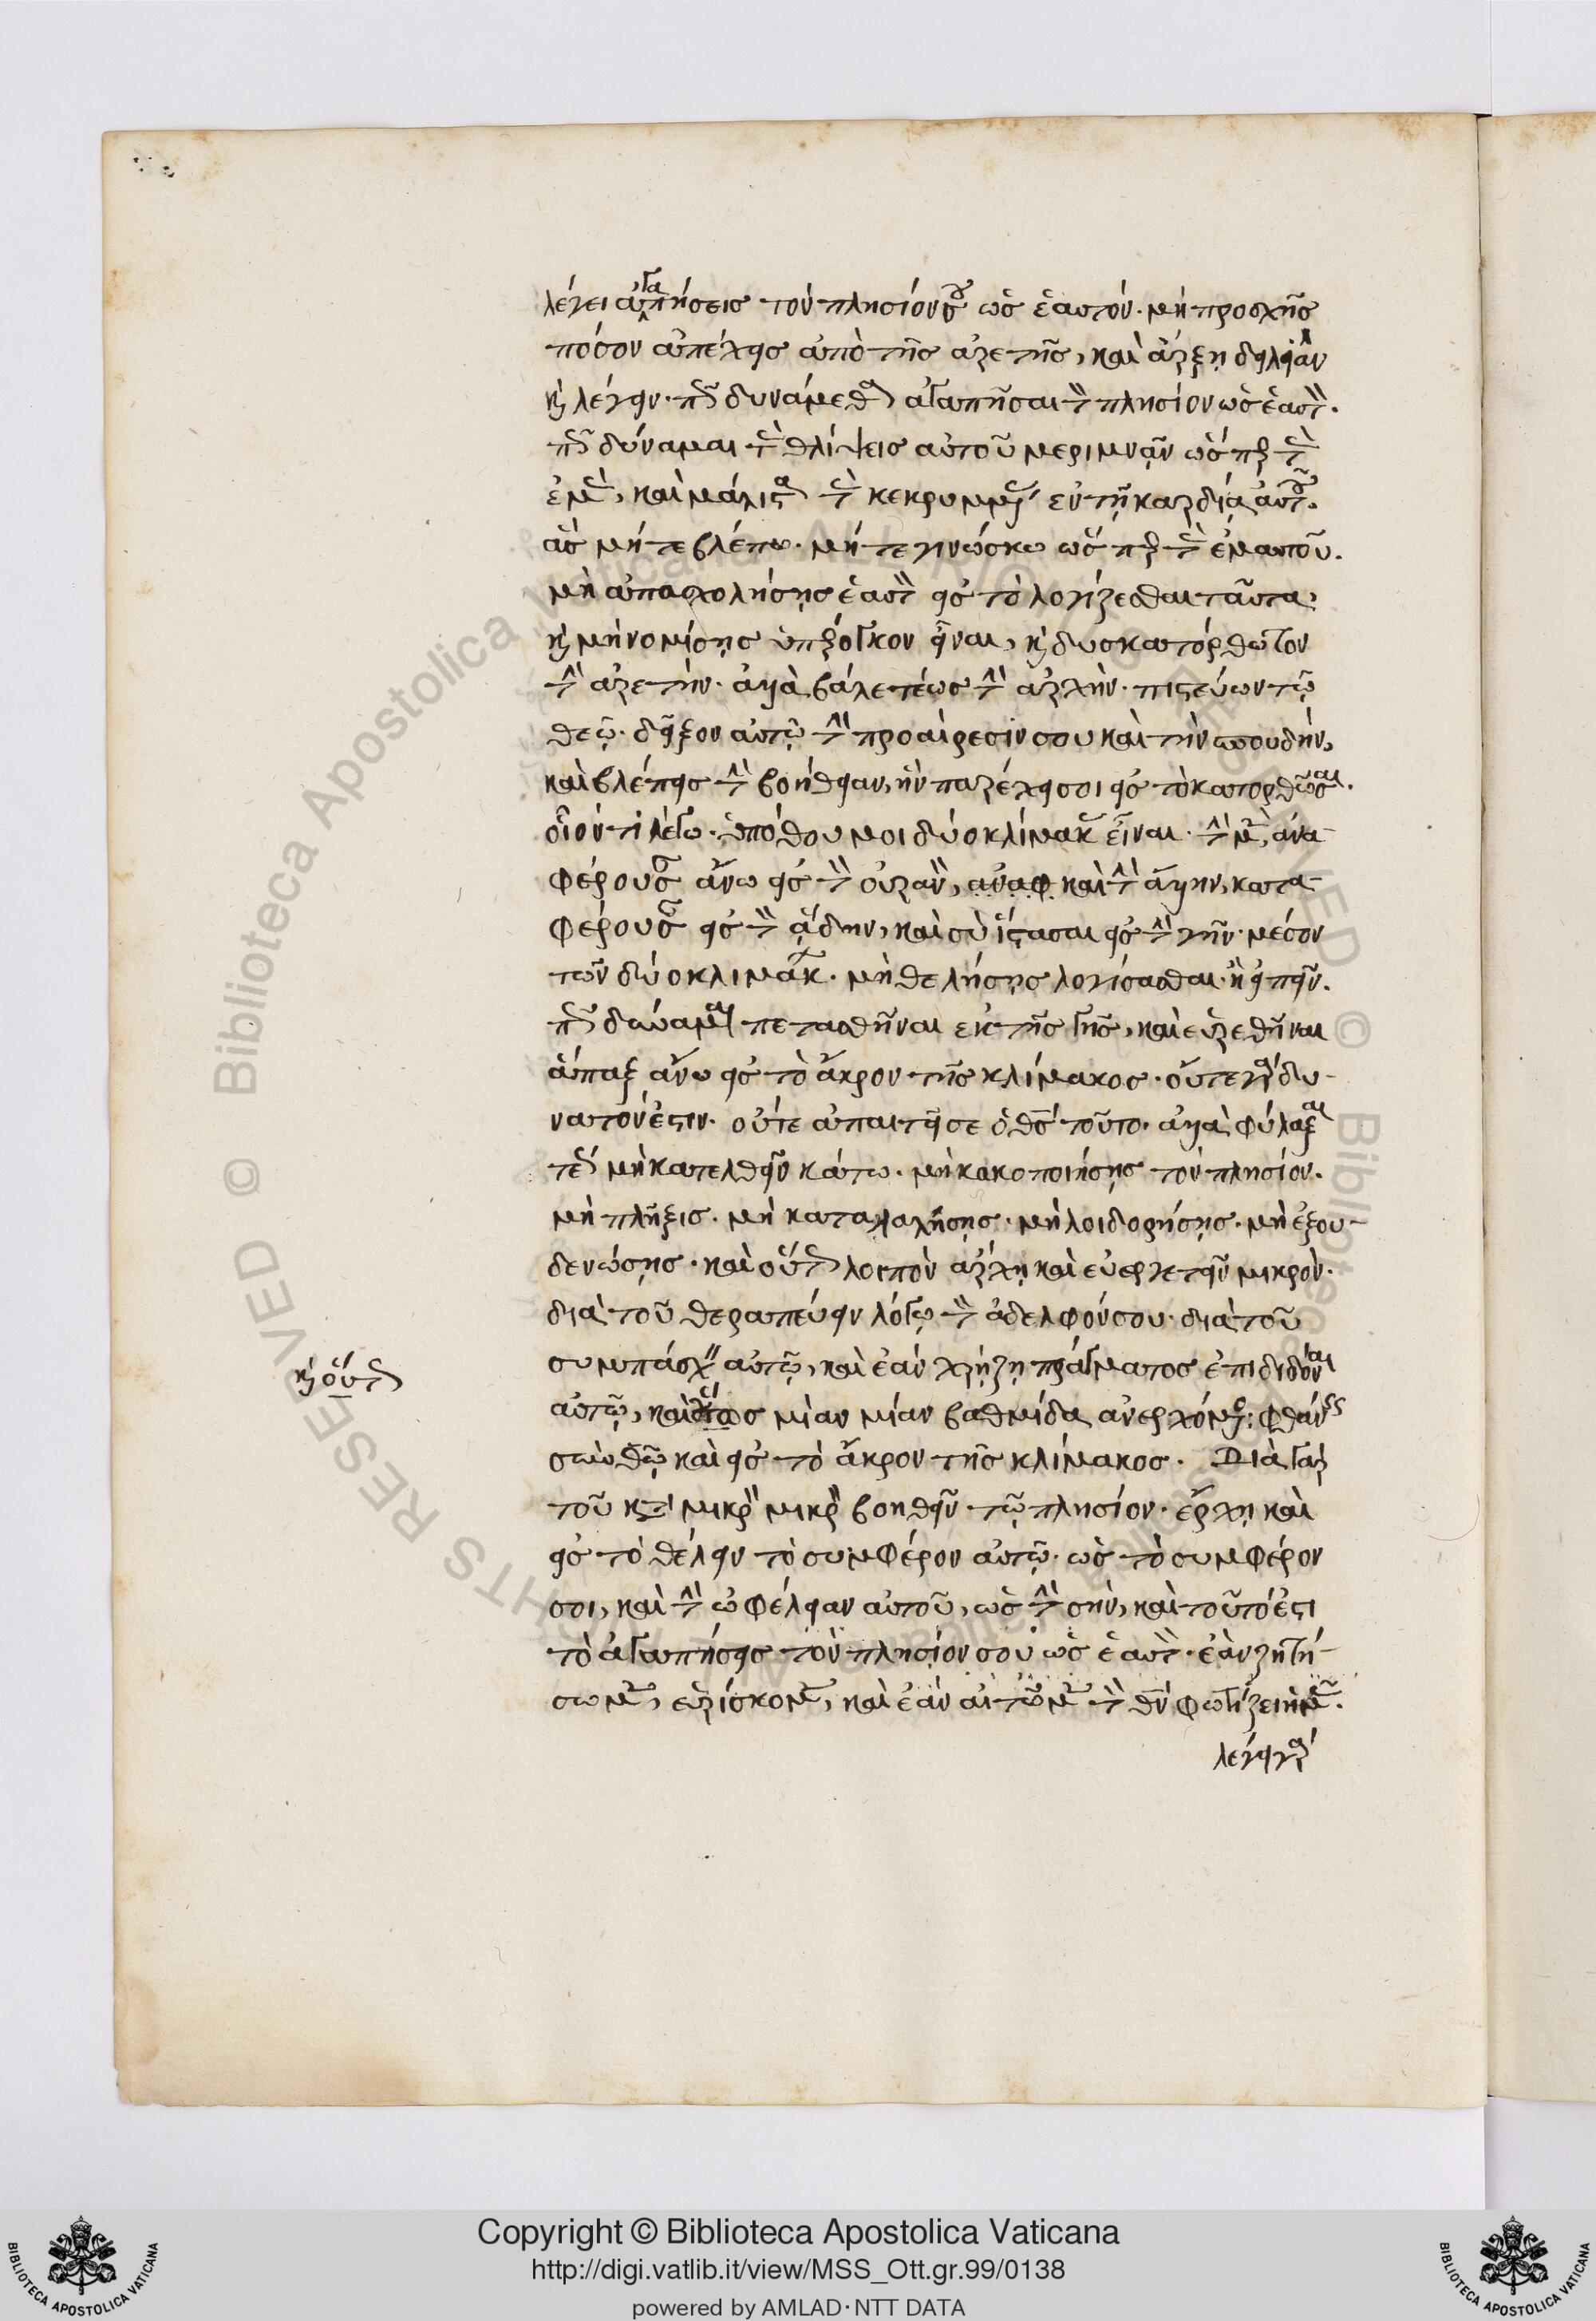 λέγει ἀγαπήσεις τὸν πλησίον σου ὡς ἑαυτόν. μὴ προσχῇς
πόσον ἀπέχεις ἀπὸ τῆς ἀρετῆς, καὶ ἄρξῃ δειλιᾶν
κ λέγειν. πῶς δυνάμεθα ἀγαπῆσαι τὸν πλησίον ὡς ἑαυτόν.
πῶς δύναμαι τὰς θλίψεις αὐτοῦ μεριμνᾶν ὥσπερ τὰς
ἐμὰς, καὶ μάλιστα τὰς κεκρυμμένας ἐν τῇ καρδίᾳ αὐτοῦ.
ἃς μήτε βλέπω. μήτε γινώσκω ὥσπερ τὰς ἐμαυτοῦ.
μὴ ἀπασχολήσῃς ἑαυτὸν εἰς τὸ λογίζεσθαι ταῦτα,
κ μὴ νομίσῃς ὑπέρογκον εἶναι, κ δυσκατόρθωτον
τὴν ἀρετήν. ἀλλὰ βάλε τέως τὴν ἀρχὴν. πιστεύων τῷ
θεῷ. δεῖξον αὐτῷ τὴν προαίρεσίν σου καὶ τὴν σπουδήν,
καὶ βλέπεις τὴν βοήθειαν, ἣν παρέχει σοι εἰς τὸ κατορθῶσαι.
οἷόν τι λέγω. ὑπόθου μοι δύο κλίμακας εἶναι. τὴν μὲν, ἀνα-
φέρουσαν ἄνω εἰς τὸν οὐρανὸν, ἀναφ καὶ τὴν ἄλλην, κατα-
φέρουσαν εἰς τὸν ᾅδην, καὶ σὺ ἵστασαι εἰς τὴν γῆν. μέσον
τῶν δύο κλιμάκων. μὴ θελήσῃς λογίσασθαι. ἢ εἰπεῖν.
πῶς δύναμαι πετασθῆναι ἐκ τῆς γῆς, καὶ εὑρεθῆναι
ἅπαξ ἄνω εἰς τὸ ἄκρον τῆς κλίμακος. οὔτε γὰρ δυ-
νατόν ἐστιν. οὔτε ἀπαιτεῖ σε ὁ θς τοῦτο. ἀλλὰ φύλαξαι
τέως μὴ κατελθεῖν κάτω. μὴ κακοποιήσῃς τὸν πλησίον.
μὴ πλῆξις. μὴ καταλαλήσῃς. μὴ λοιδορήσῃς. μὴ ἐξου-
δενώσῃς. καὶ οὕτως λοιπὸν ἄρχῃ καὶ εὐεργετεῖν μικρόν.
διὰ τοῦ θεραπεύειν λόγῳ τὸν ἀδελφόν σου. διὰ τοῦ
συμπάσχειν αὐτῷ, καὶ ἐὰν χρῄζῃ πράγματος ἐπιδιδόναι
κ οὕτως
αὐτῷ, καὶ μίαν μίαν βαθμίδα ἀνερχόμενος: φθάνεις
σὺν θῷ καὶ εἰς τὸ ἄκρον τῆς κλίμακος. Διὰ γὰρ
τοῦ κατὰ μικρὸν μικρὸν βοηθεῖν τῷ πλησίον. ἔρχῃ καὶ
εἰς τὸ θέλειν τὸ συμφέρον αὐτῷ. ὡς τὸ συμφέρον
σοι, καὶ τὴν ὠφέλειαν αὐτοῦ, ὡς τὴν σήν, καὶ τοῦτό ἐστι
τὸ ἀγαπήσεις τὸν πλησίον σου ὡς ἑαυτόν. ἐὰν ζητή-
σωμεν, εὑρίσκομεν, καὶ ἐὰν αἰτῶμεν τὸν θν φωτίζει ἡμᾶς.
λέγει γὰρ
Copyright © Biblioteca Apostolica Vaticana
http://digi.vatlib.it/view/MSS_Ott.gr.99/0138
powered by AMLAD·NTT DATA